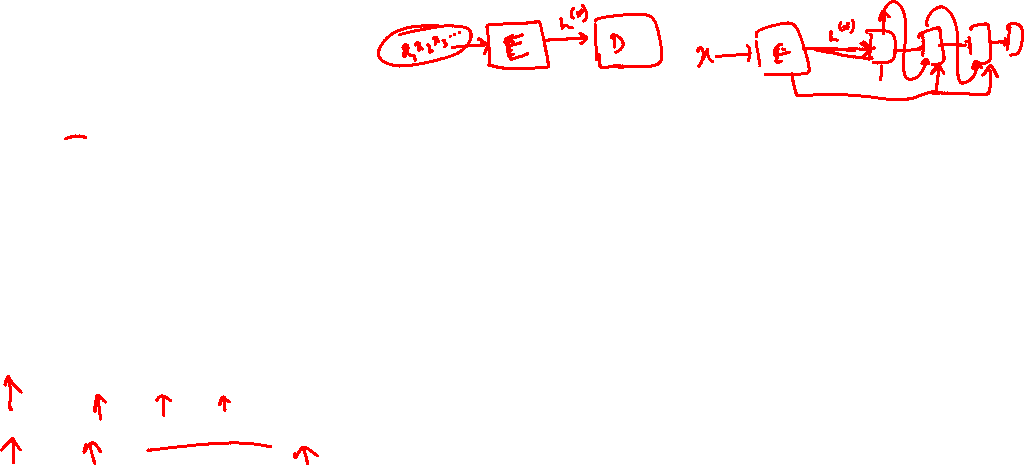 x₁ x₂ x₃ ... E h⁽ˣ⁾ D
x E h⁽ˣ⁾ D